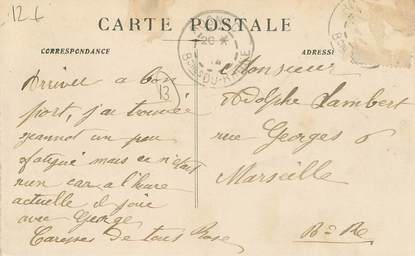 12 €
CARTE POSTALE
CORRESPONDANCE
ADRESSE
Arrivée a bon
port, j'ai trouvée
Jeannot un peu
fatigué mais ce n'était
rien car a l'heure
actuelle il joue
avec George
Caresses de tous Rose
13
Monsieur
Adolphe Lambert
rue Georges 6
Marseille
B= Rh